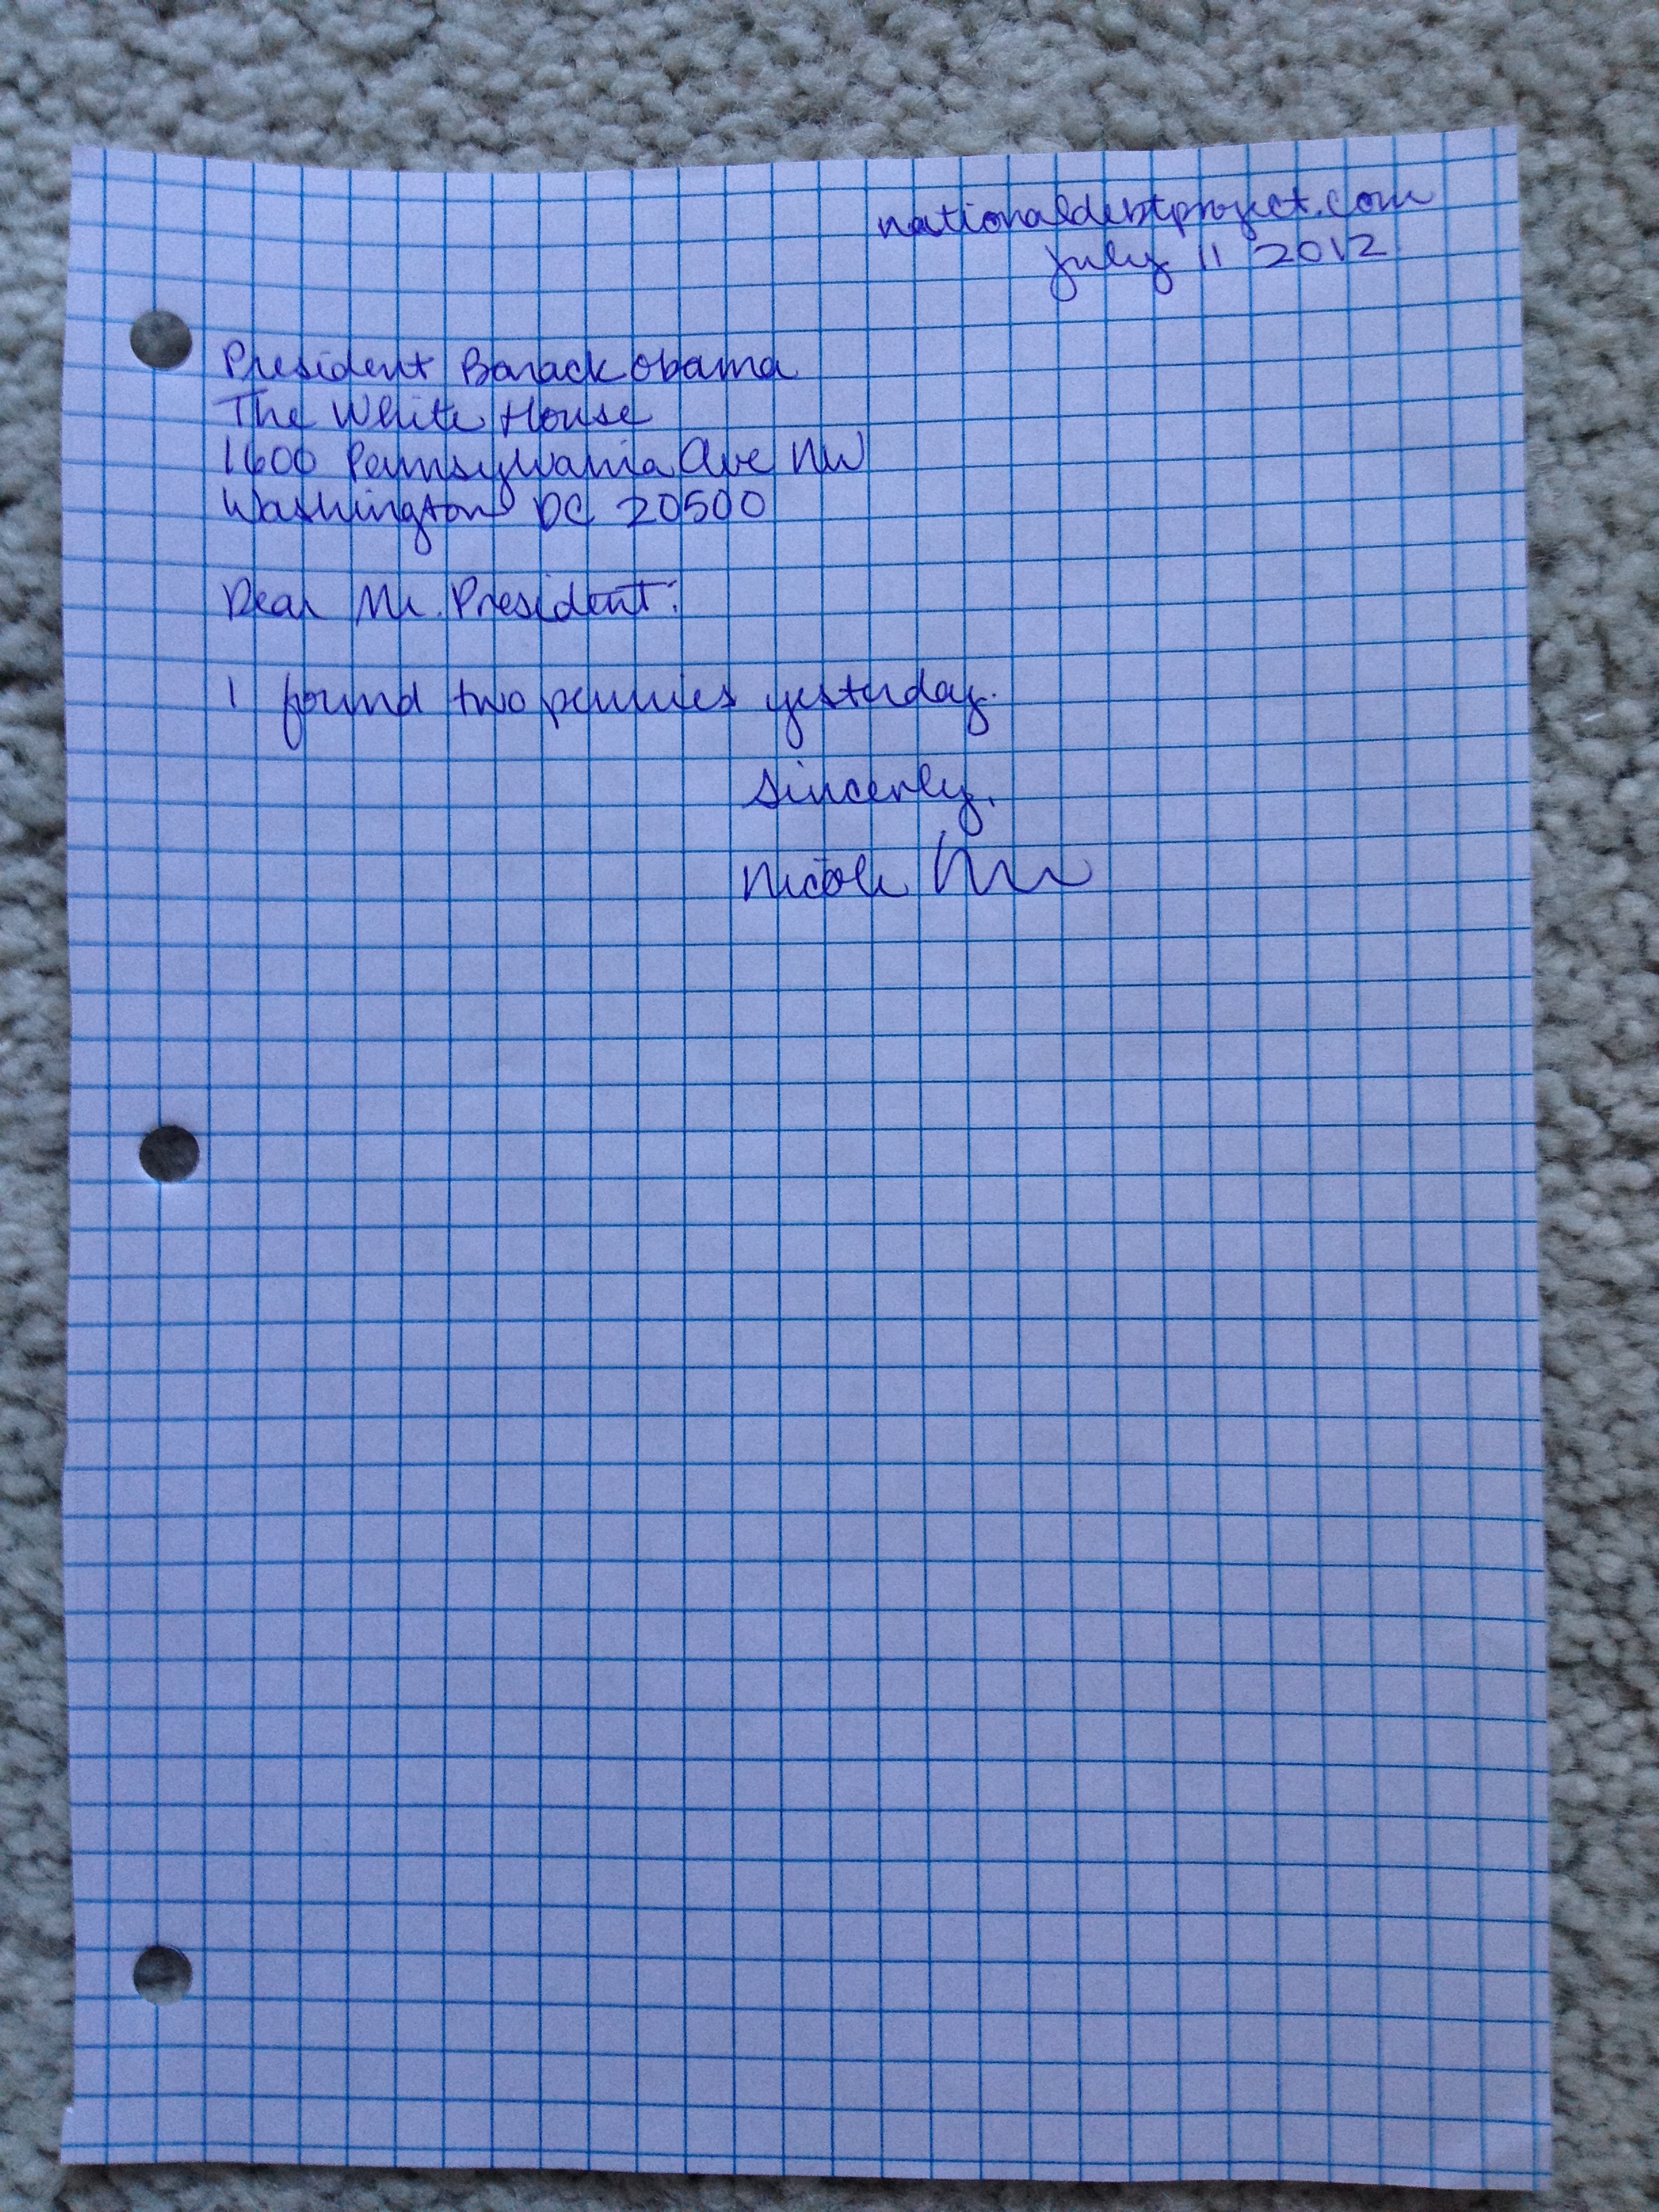 nationaldebtproject.com
July 11 2012
President Barack Obama
The White House
1600 Pennsylvania Ave NW
Washington DC 20500
Dear Mr. President:
I found two pennies yesterday.
Sincerly,
Nicole